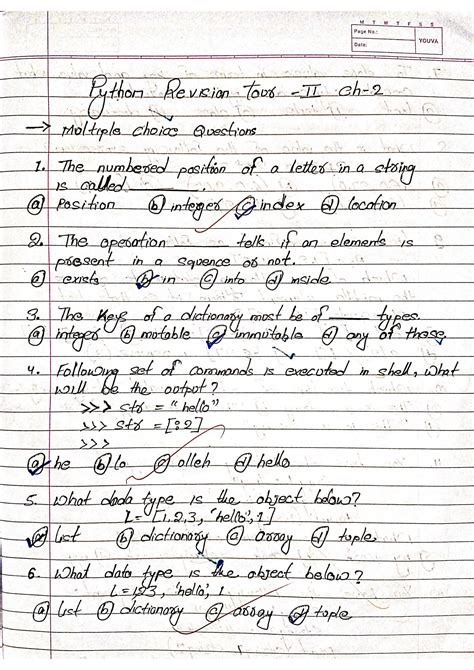 M T W T F S S
Page No.:
Date:
YOUVA
Python Revision tour - II ch-2
→ Multiple choice Questions
1. The numbered position of a letter in a string
is called ________.
(a) position (b) integer (c) index (d) location
2. The operation ______ tells if an elements is
present in a squence or not.
(a) exists (b) in (c) into (d) inside
3. The Keys of a dictionary most be of ____ types.
(a) integer (b) mutable (c) immutable (d) any of these
4. Following set of commands is executed in shell, what
will be the output?
>>> str = "hello"
>>> str = [:2]
>>>
(a) he (b) lo (c) olleh (d) hello
5. What data type is the object below?
L = [1,2,3, 'hello', 1]
(a) list (b) dictionary (c) array (d) tuple
6. What data type is the object below?
L = 123, 'hello', 1
(a) list (b) dictionary (c) array (d) tuple